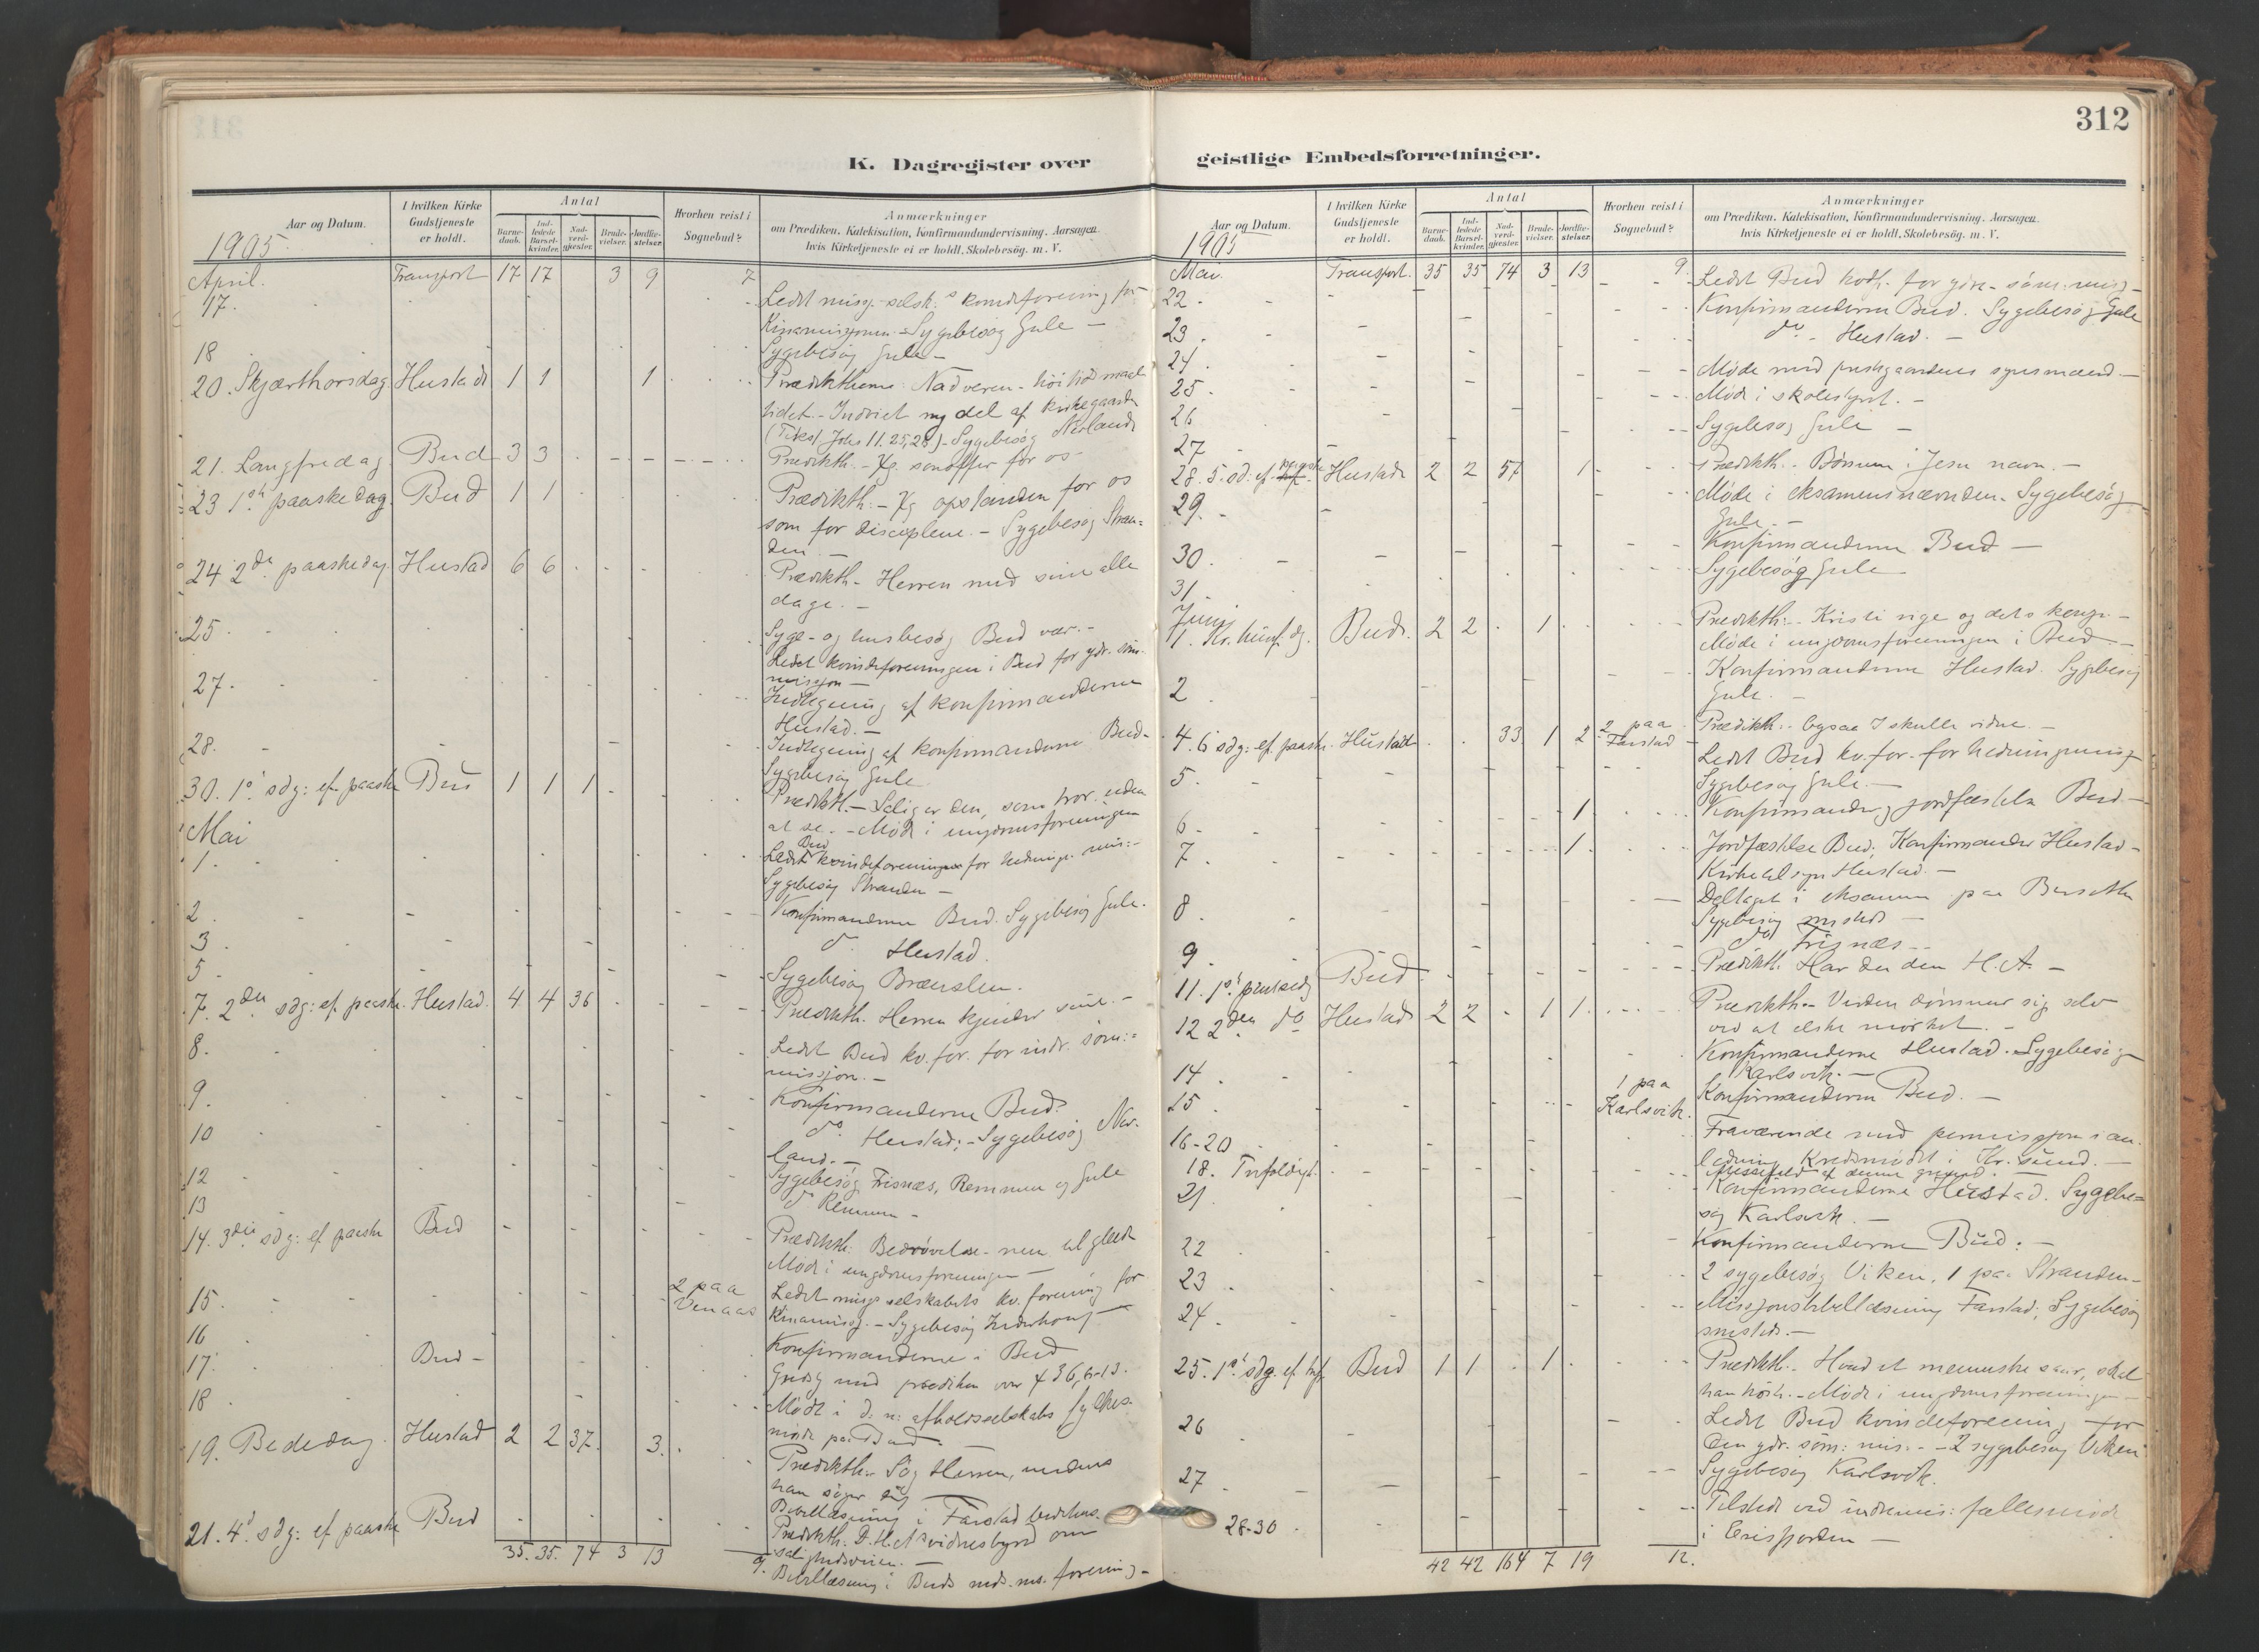 312
K. Dagregister over
geistlige Embedsforretninger.
Aar og Datum.
I hvilken Kirke Gudstjeneste er holdt.
Antal
Barne-daab.
Ind-ledede Barsel-kvinder.
Nad-verd-gjæster.
Brude-vielser.
Jordfæ-stelser.
Hvorhen reist i Sognebud?
Anmærkninger
om Prædiken, Katekisation, Konfirmandundervisning, Aarsagen,
hvis Kirketjeneste ei er holdt, Skolebesög. m. V.
1905.
April. Transport 17 17 3 9 7
17. Ledet -selsk.s forening for
Kinamissjonen - Sygebesøg Gule -
18 Sygebesøg Gule -
20. Skjærthorsdag Hustad 1 1 1 Prædikthema: Nadveren -
tidet. - Indviet ny del af kirkegaarden
(Tekst Johs 11. 25, 28) - Sygebesøg Nerland
21. Langfredag Bud 3 3 Prædikth. - Kg. sonoffer for os -
23 1ste paaskedag Bud 1 1 Prædikth. - Kg opstanden for os
som for disciplene. - Sygebesøg Stran=
den. -
24 2den paaskedag. Hustad 6 6 Prædikth. - Herren med sine alle
dage. -
25. Syge- og husbesøg Bud vær. -
Ledet kvindeforeningen i Bud for ydr. søm.
missjon -
27. Indlegning af konfirmanderne
Hustad. -
28. Indlegning af konfirmanderne Bud -
Sygebesøg Gule
30. 1ste sdg: ef. paaske Bud 1 1 1 Prædikth. - Salig er den, som tror uden
at se. - Møde i ungdomsforeningen
Mai Bud
1. Ledet kvindeforeningen for hedninge mis: -
Sygebesøg Stranden -
2. Konfirmanderne Bud. Sygebesøg Gule.
3. do Hustad.
5. Sygebesøg Brænslen.
7. 2den sdg: ef. paaske. Hustad. 4 4 36 Prædikth. Herren kjender sine. -
8. Ledet Bud kv. for. for indr. søm:=
missjon. -
9. Konfirmanderne Bud.
10 do Hustad; - Sygebesøg Ner-
land. -
12 Sygebesøg Frisnæs, Remmen og Gule
13 do Remmen -
14. 3die sdg: ef. paaske Bud Prædikth: Bedrøvelsen til glæde
Møde i ungdomsforeningen -
15. 2 paa Venaas Ledet selskabets kv. forening for
Kinamissj. - Sygebesøg
16 Konfirmanderne i Bud
17. Bud - Gudstj med prædiken over
18 Møde i d. n: afholdsselskabs fylkes-
møde paa Bud. -
19. Bededag. Hustad 2 2 37. 3. Prædikth. Søg Herren, medens
han søger dig -
Bibellæsning i Farstad bedehus.
21. 4de sdg: ef. paaske Bud Prædikth. D. H. A's vidnesbyrd om
salighedsveien. -
35. 35. 74 3 13 9. Bibellæsning i Buds forening -
Aar og Datum.
I hvilken Kirke Gudstjeneste er holdt.
Antal
Barne-daab.
Ind-ledede Barsel-kvinder.
Nad-verd-gjæster.
Brude-vielser.
Jordfæ-stelser.
Hvorhen reist i Sognebud?
Anmærkninger
om Prædiken, Katekisation, Konfirmandundervisning, Aarsagen,
hvis Kirketjeneste ei er holdt, Skolebesög. m. V.
1905
Mai. Transport. 35 35 74 3 13 9.
22. Ledet Bud for - søm: miss -
23. Konfirmanderne Bud. Sygebesøg Gule
24. do - Hustad. -
25. Møde med synsmænd. -
26 Møde i skolestyret. -
27 Sygebesøg Gule -
28. 5. sd. ef. paaske Hustad 2 2 57 1 Prædikth. - Bønnen i Jesu navn. -
29. Møde i eksamensnævnden. Sygebesøg
Gule. -
30. Konfirmanderne Bud -
31. Sygebesøg Gule
Juni
1. Kr. himf. dg. Bud. 2 2 1 Prædikth. - Kristi rige og dets konge -
Møde i ungdomsforeningen i Bud. -
2 Konfirmanderne Hustad. Sygebesøg
Gule. -
4. 6 sdg: ef. paaske. Hustad 33 1 2 2 paa Farstad Prædikth. - Ogsaa I skulle vidne. -
5. Ledet Bud kv. for. for hedningmiss
Sygebesøg Gule. -
6. 1 Konfirmander, jordfæstelse Bud -
7. 1. Jordfæstelse Bud; Konfirmander Hustad -
Kirketilsyn Hustad. -
8. Deltaget i eksamen paa Berseth
Sygebesøg -
9. do Frisnæs -
11. 1ste pinsedg Bud Prædikth. Har du den H. A. -
12 2den do Hustad 2 2 1 1. Prædikth. - Verden dømmer sig selv
ved at elske mørket. -
14. Konfirmanderne Hustad. Sygebesøg
Karlsvik. -
15. 1 paa Karlsvik. Konfirmanderne Bud. -
16-20 Fraværende med permissjon i an-
ledning Kredsmøde i Kr.sund. -
18. Trefoldigh. Messefald af denne grund
21. Konfirmanderne Hustad. Sygebe=
søg Karlsvik. -
22 Konfirmanderne Bud. -
23 2 sygebesøg Viken, 1 paa Stranden -
24. Missjonsbibellæsning Farstad; Sygebesøg
. -
25. 1ste sdg. ef. tref. Bud 1 1 1 Prædikth. - Hvad et menneske saar, skal
han høste. - Møde i ungdomsforeningen -
26 Ledet Bud kvindeforening for
den ydr. søm: mis. - - 2 sygebesøg Viken
27 Sygebesøg Karlsvik.
28-30. Tilstede ved indremis: fællesmøde
i Eresfjorden -
42 42 164 7 19 12.